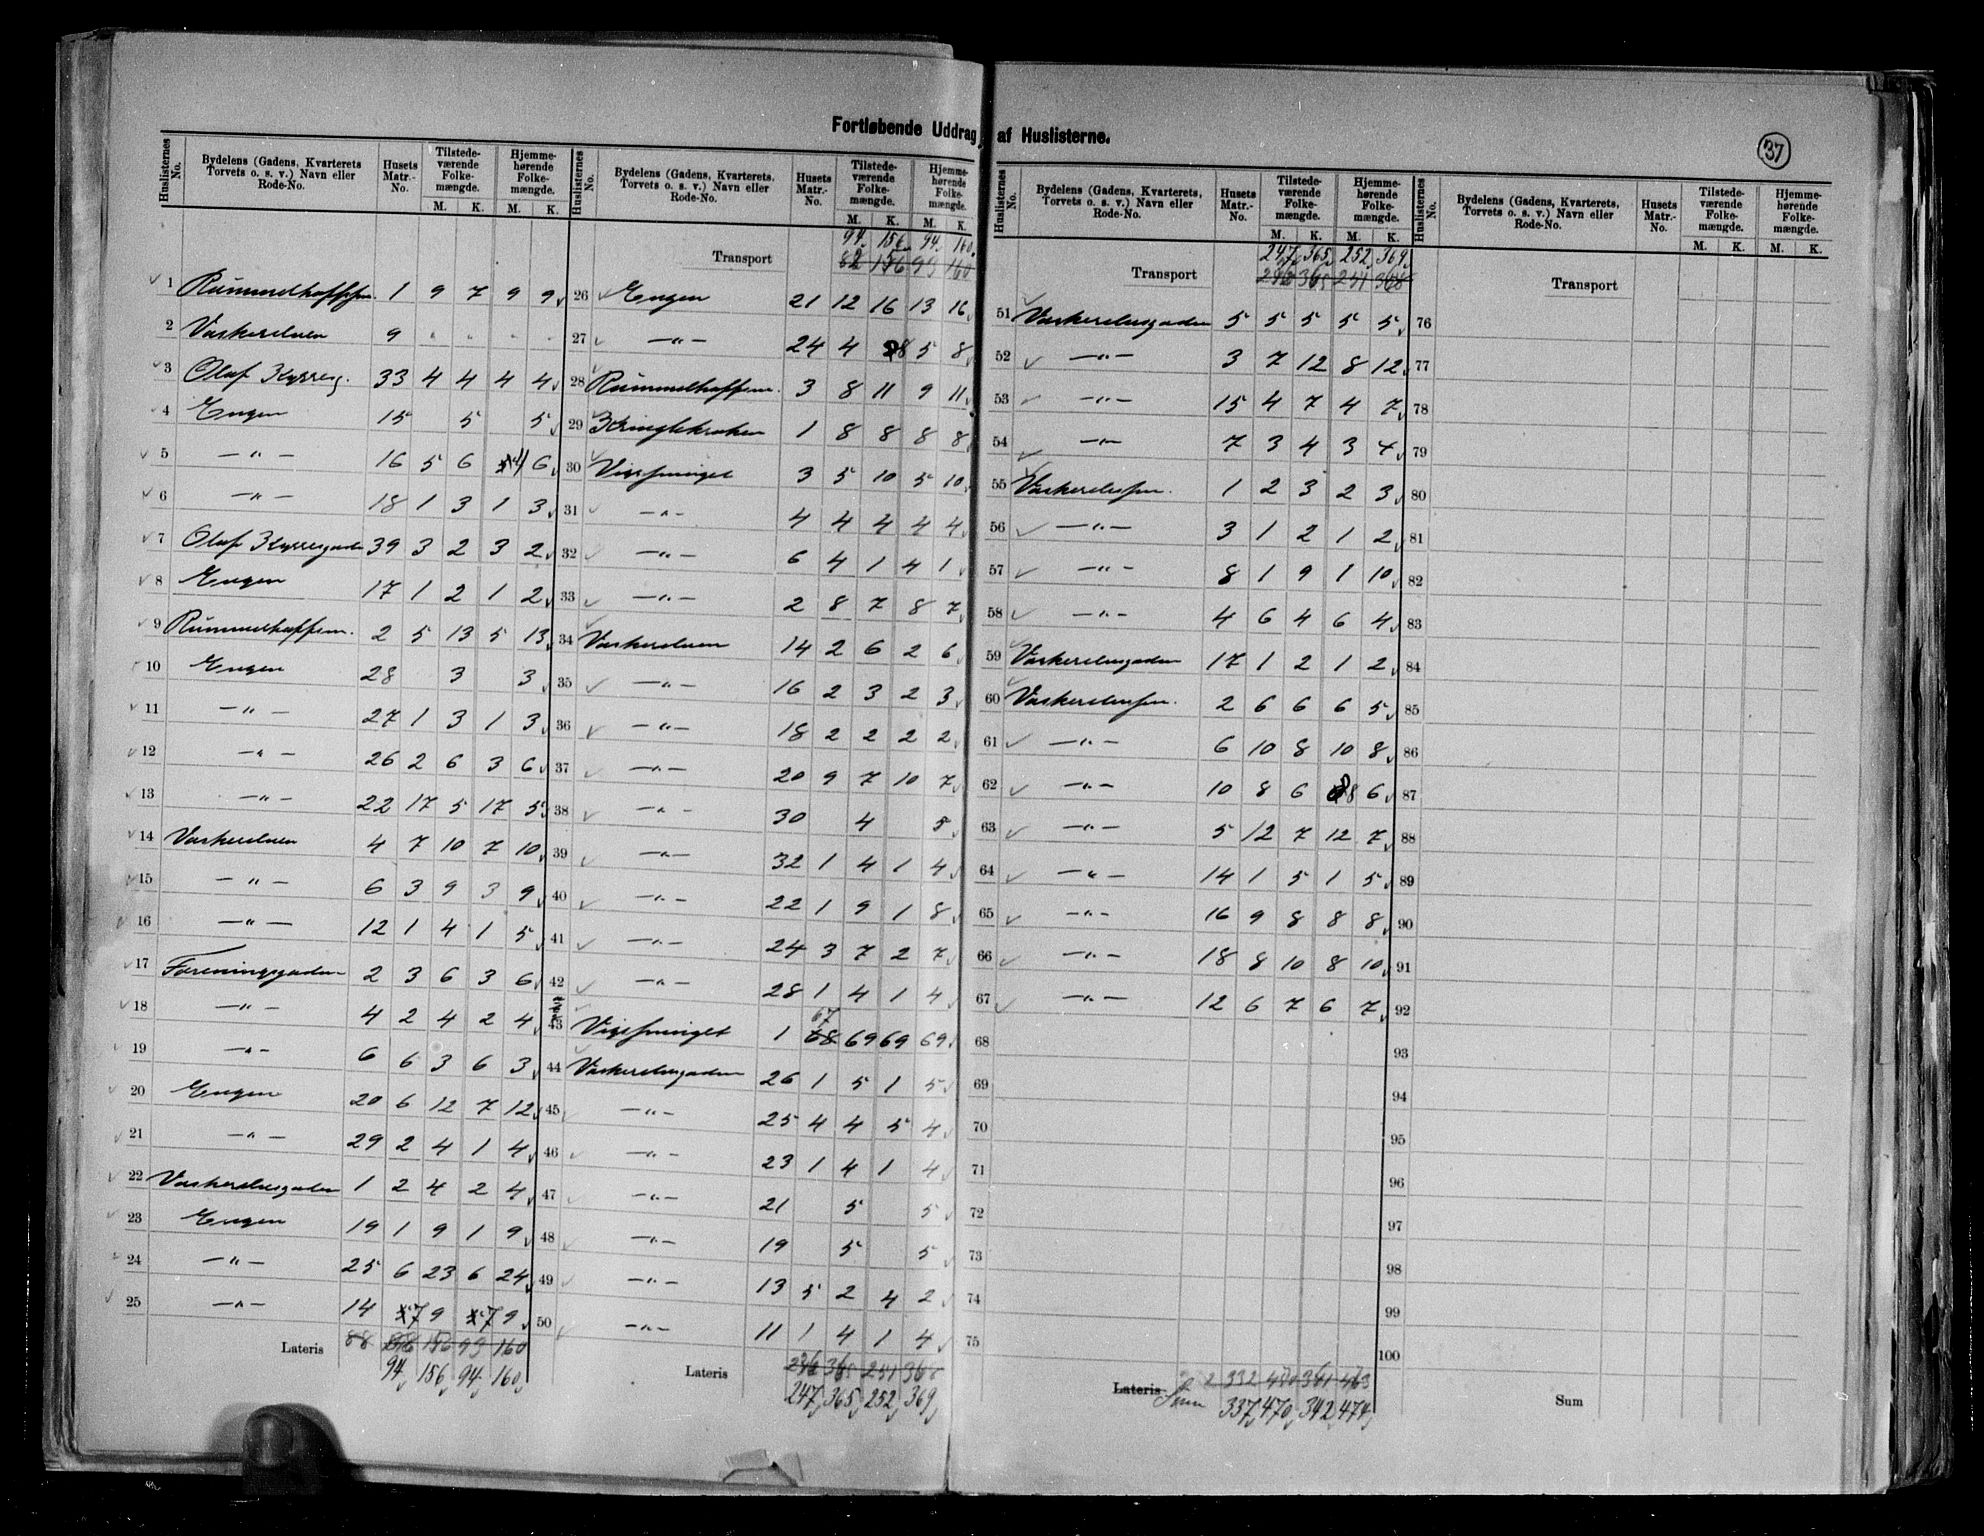 Fortløbende Uddrag af Huslisterne.
37
Huslisternes No. Bydelens (Gadens, Kvarterets Torvets o. s. v.) Navn eller Rode-No. Husets Matr.-No. Tilstedeværende Folkemængde. M. K. Hjemmehørende Folkemængde. M. K.
1 Rummelhoffsm. 1 9 7 9 9
2 Vaskerelven 9 " " " "
3 Olaf Kyrresg. 33 4 4 4 4
4 Engen 15 5 5
5 —"— 16 5 6 4 6
6 —"— 18 1 3 1 3
7 Olaf Kyrresgade 39 3 2 3 2
8 Engen 17 1 2 1 2
9 Rummelhoffsm. 2 5 13 5 13
10 Engen 28 3 3
11 —"— 27 1 3 1 3
12 —"— 26 2 6 3 6
13 —"— 22 17 5 17 5
14 Vaskerelven 4 7 10 7 10
15 —"— 6 3 9 3 9
16 —"— 12 1 4 1 5
17 Foreningsgaden 2 3 6 3 6
18 —"— 4 2 4 2 4
19 —"— 6 6 3 6 3
20 Engen 20 6 12 7 12
21 —"— 29 2 4 1 4
22 Vaskerelvsgaden 1 2 4 2 4
23 Engen 19 1 9 1 9
24 —"— 25 6 23 6 24
25 —"— 14 7 9 7 9
Lateris 88 156 93 160
94 156 94 160
Huslisternes No. Bydelens (Gadens, Kvarterets, Torvets o. s. v.) Navn eller Rode-No. Husets Matr.-No. Tilstedeværende Folkemængde. M. K. Hjemmehørende Folkemængde. M. K.
94 156 94 160
Transport 82 156 93 160
26 Engen 21 12 16 13 16
27 —"— 24 4 8 5 8
28 Rummelhoffsm. 3 8 11 9 11
29 Kringlekroken 1 8 8 8 8
30 Vissminget 3 5 10 5 10
31 —"— 4 4 4 4 4
32 —"— 6 4 1 4 1
33 —"— 2 8 7 8 7
34 Vaskerelven 14 2 6 2 6
35 —"— 16 2 3 2 3
36 —"— 18 2 2 2 2
37 —"— 20 9 7 10 7
38 —"— 30 4 5
39 —"— 32 1 4 1 4
40 —"— 22 1 9 1 8
41 —"— 24 3 7 2 7
42 —"— 28 1 4 1 4
67
43 Vissminget 1 68 69 69 69
44 Vaskerelvsgaden 26 1 5 1 5
45 —"— 25 4 4 5 4
46 —"— 23 1 4 1 4
47 —"— 21 5 5
48 —"— 19 5 5
49 —"— 13 5 2 4 2
50 —"— 11 1 4 1 4
Lateris 246 365 251 368
247 365 252 369
Huslisternes No. Bydelens (Gadens, Kvarterets, Torvets o. s. v.) Navn eller Rode-No. Husets Matr.-No. Tilstedeværende Folkemængde. M. K. Hjemmehørende Folkemængde. M. K.
247 365 252 369
Transport 246 365 251 368
51 Vaskerelvsgaden 5 5 5 5 5
52 —"— 3 7 12 8 12
53 —"— 15 4 7 4 7
54 —"— 7 3 4 3 4
55 Vaskerelvsm. 1 2 3 2 3
56 —"— 3 1 2 1 2
57 —"— 8 1 9 1 10
58 —"— 4 6 4 6 4
59 Vaskerelvsgaden 17 1 2 1 2
60 Vaskerelvsm. 2 6 6 6 5
61 —"— 6 10 8 10 8
62 —"— 10 8 6 8 6
63 —"— 5 12 7 12 7
64 —"— 14 1 5 1 5
65 —"— 16 9 8 8 8
66 —"— 18 8 10 8 10
67 —"— 12 6 7 6 7
68
69
70
71
72
73
74
75
Lateris 332 470 341 463
Sum 337 470 342 474
Huslisternes No. Bydelens (Gadens, Kvarterets, Torvets o. s. v.) Navn eller Rode-No. Husets Matr.-No. Tilstedeværende Folkemængde. M. K. Hjemmehørende Folkemængde. M. K.
Transport
76
77
78
79
80
81
82
83
84
85
86
87
88
89
90
91
92
93
94
95
96
97
98
99
100
Sum